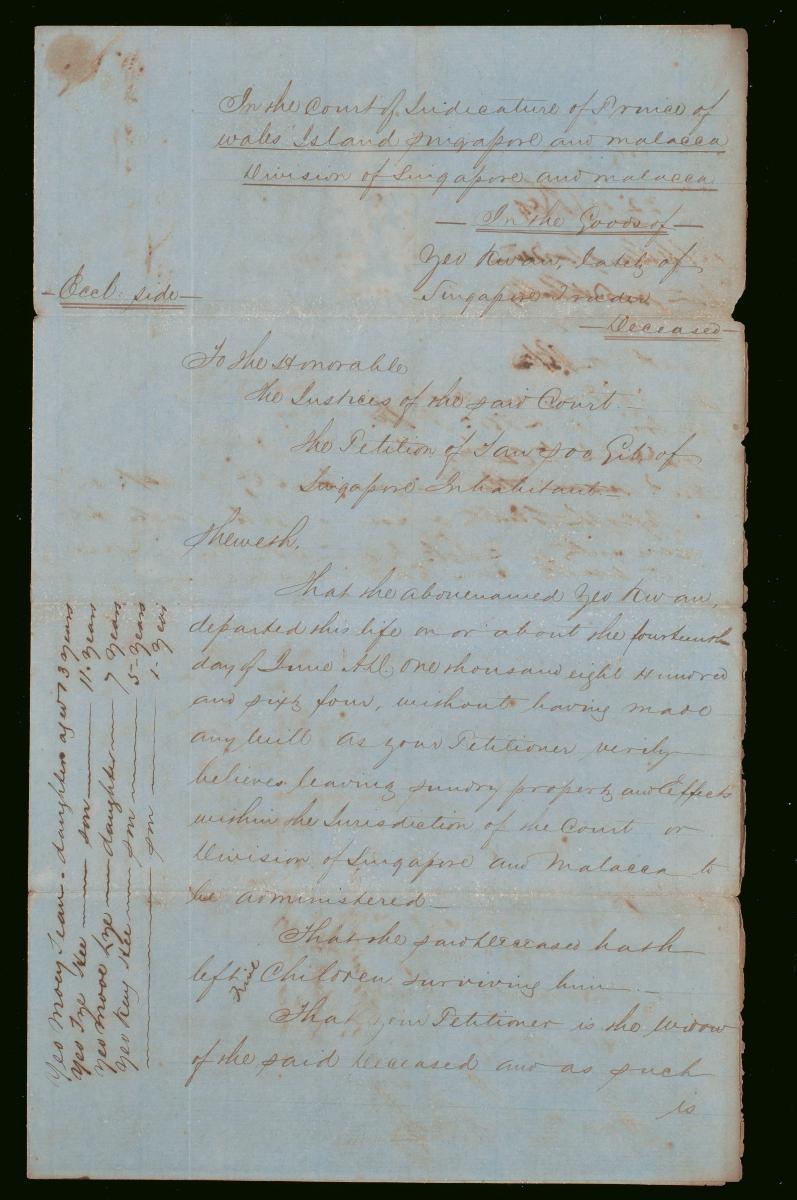 In the Court of Judicature of Prince of
Wales' Island Singapore and Malacca
Division of Singapore and Malacca
— In the Goods of —
Yeo Kwan, lately of
Singapore Trader
— Deceased —
— Eccl: side —
To the Honorable
the Justices of the said Court —
The Petition of Tan Soo Git of
Singapore Inhabitant —
Sheweth,
That the abovenamed Yeo Kwan,
departed this life on or about the fourteenth
day of June A.D. One thousand eight Hundred
and sixty four, without having made
any Will as your Petitioner verily
believes leaving sundry property and Effects
within the Jurisdiction of the Court or
Division of Singapore and Malacca to
be administered —
That the said Deceased hath
left five Children surviving him —
That your Petitioner is the Widow
of the said Deceased and as such
is
Yeo Moey - daughter aged 13 years
Yeo Kee — son — 11 years
Yeo — daughter — 7 years
Yeo Kee — son — 5 years
— son — 1 year